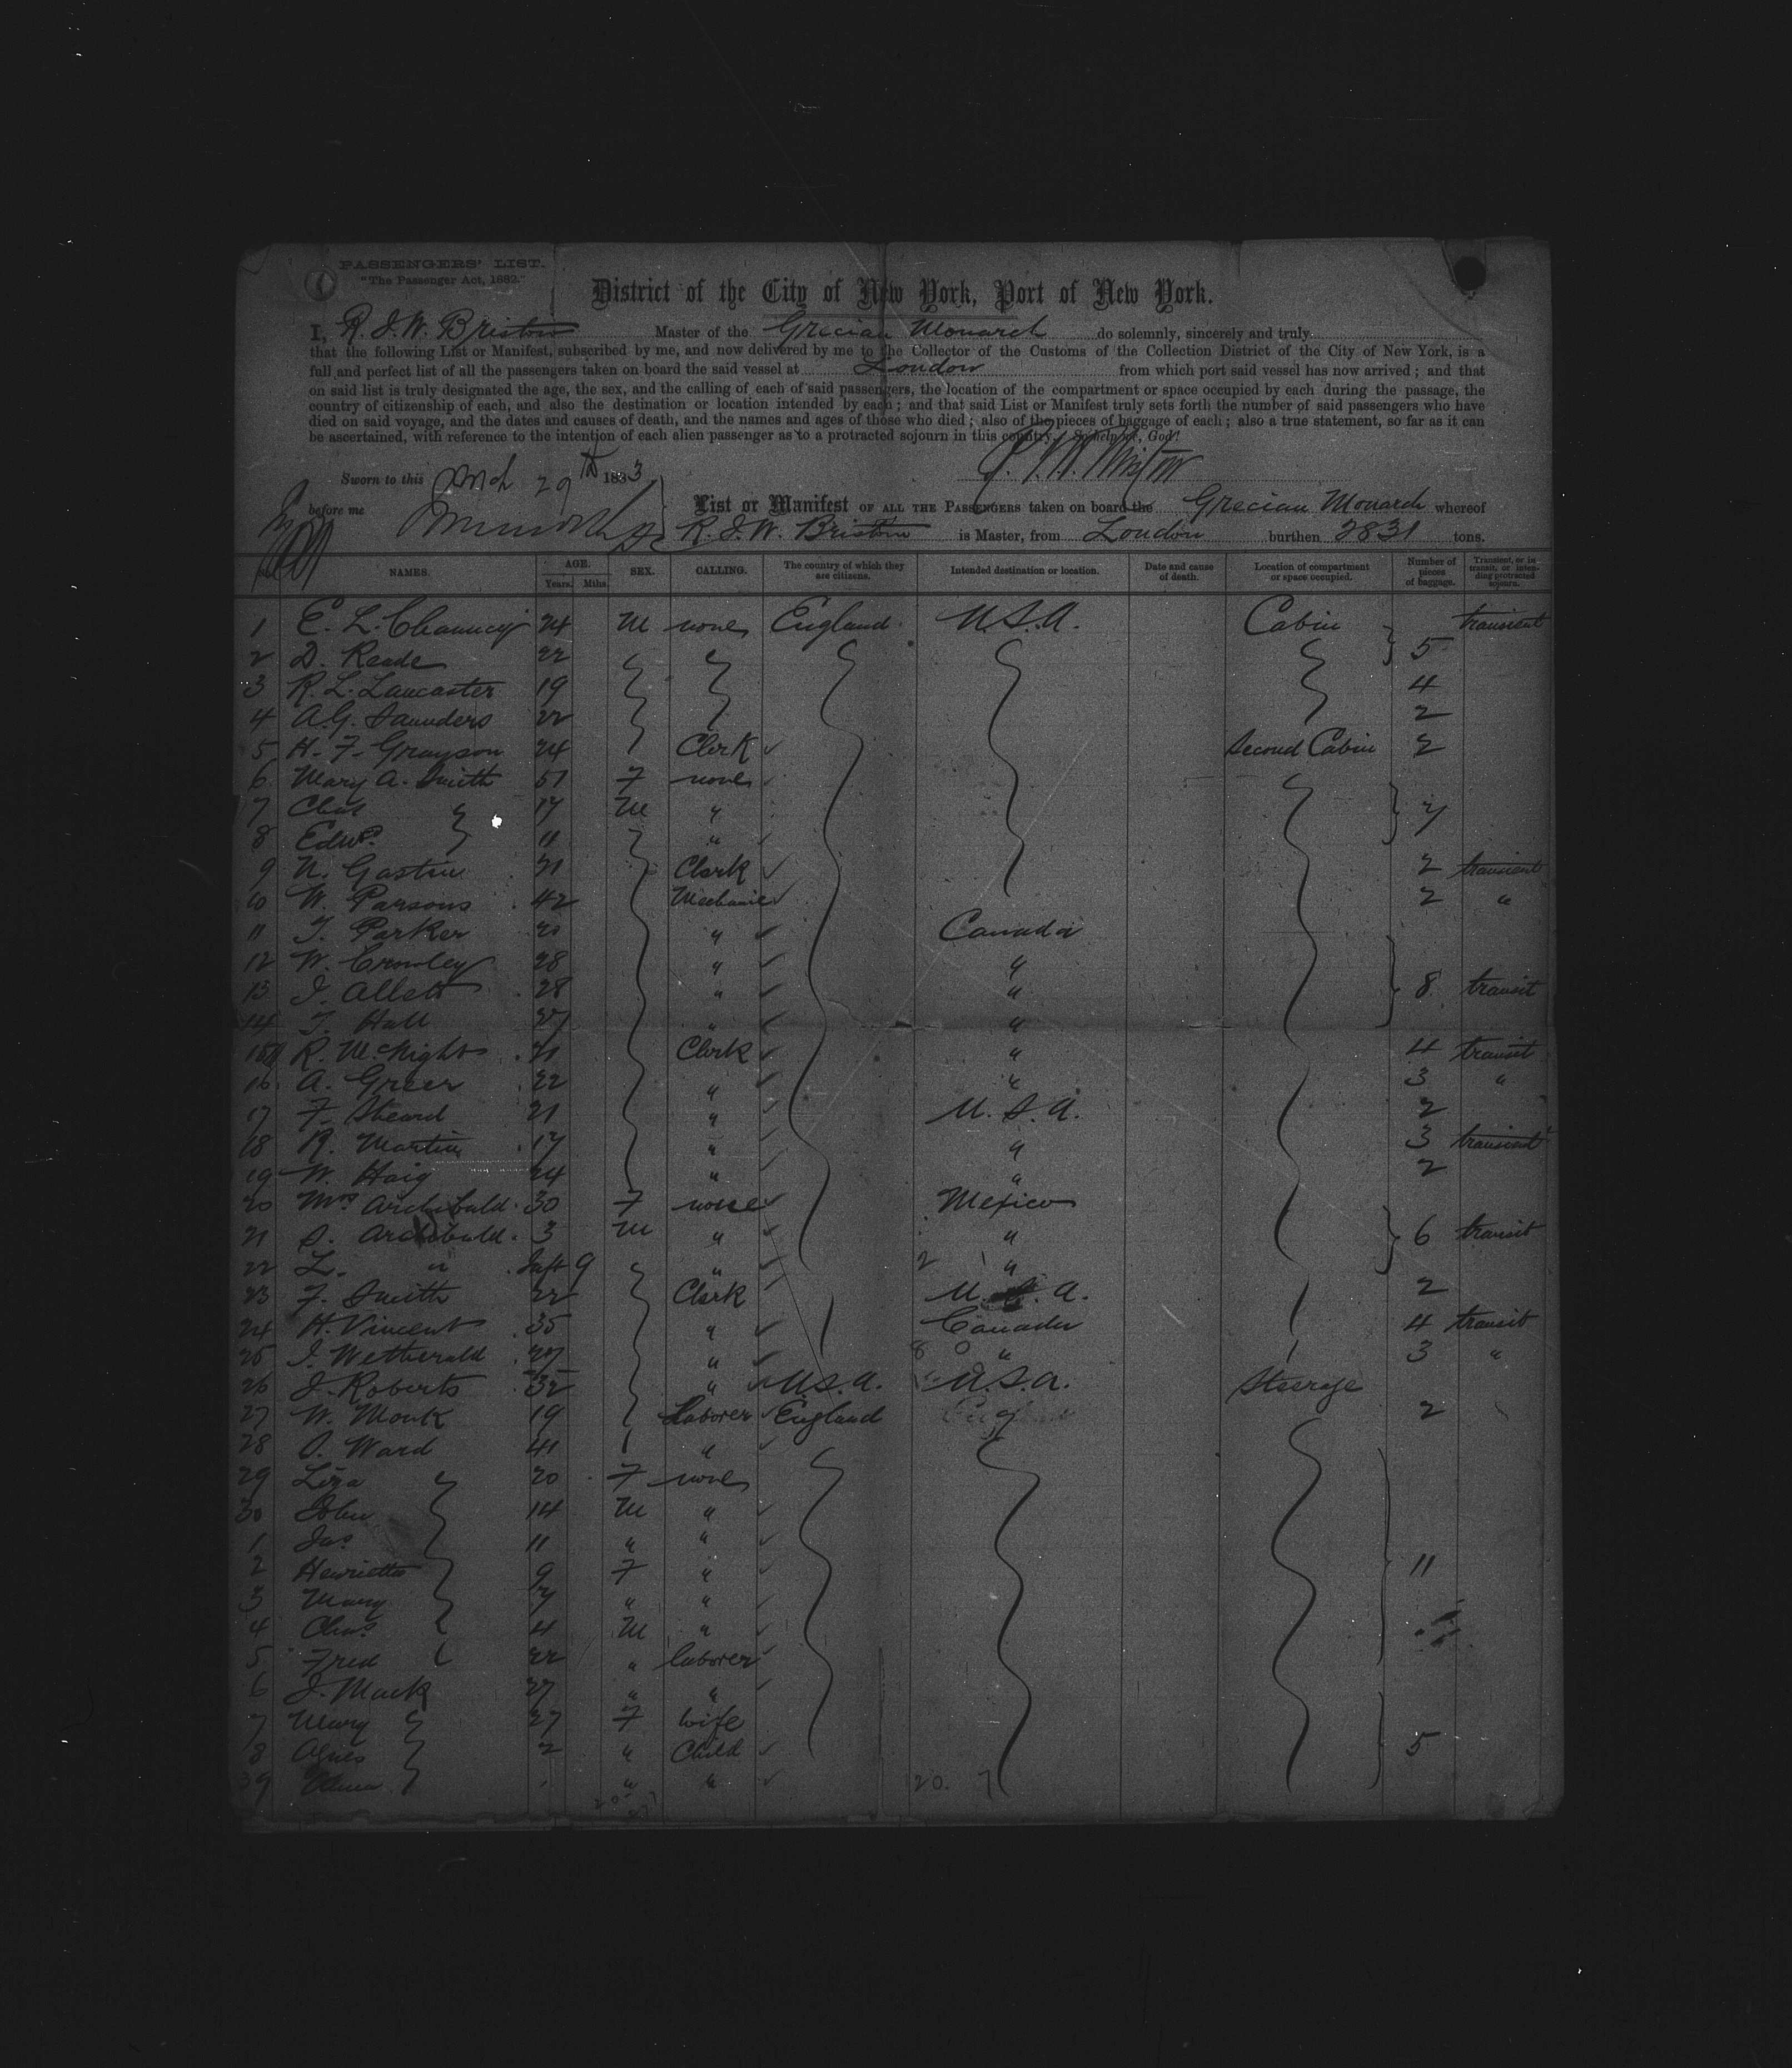 PASSENGERS' LIST.
"The Passenger Act, 1882."
District of the City of New York, Port of New York.
I, R. J. W. Bristow Master of the Grecian Monarch do solemnly, sincerely and truly
that the following List or Manifest, subscribed by me, and now delivered by me to the Collector of the Customs of the Collection District of the City of New York, is a
full and perfect list of all the passengers taken on board the said vessel at London from which port said vessel has now arrived; and that
on said list is truly designated the age, the sex, and the calling of each of said passengers, the location of the compartment or space occupied by each during the passage, the
country of citizenship of each, and also the destination or location intended by each; and that said List or Manifest truly sets forth the number of said passengers who have
died on said voyage, and the dates and causes of death, and the names and ages of those who died; also of the pieces of baggage of each; also a true statement, so far as it can
be ascertained, with reference to the intention of each alien passenger as to a protracted sojourn in this country. So help me, God!
Sworn to this Mch 29th 1883
before me
List or Manifest OF ALL THE PASSENGERS taken on board the Grecian Monarch whereof
R. J. W. Bristow is Master, from London burthen 2831 tons.
NAMES. AGE. Years. Mths. SEX. CALLING. The country of which they are citizens. Intended destination or location. Date and cause of death. Location of compartment or space occupied. Number of pieces of baggage. Transient, or in transit, or intending protracted sojourn.
1 E. L. Chauncey 24 M none England U.S.A. Cabin transient
2 D. Reade 22 5
3 R. L. Lancaster 19 4
4 A. G. Saunders 22 2
5 H. F. Grayson 24 Clerk Second Cabin 2
6 Mary A. Smith 51 F none
7 Chas 17 M " 7
8 Edwd. 11 "
9 N. Gastin 21 Clerk 2 transient
10 W. Parsons 42 Mechanic 2 "
11 T. Parker 20 " Canada
12 W. Crowley 28 " "
13 J. Allett 28 " " 8 transit
14 T. Hall 27 " "
15 R. McNight 21 Clerk " 4 transit
16 A. Greer 22 " " 3 "
17 F. Sheard 21 " U.S.A. 2
18 R. Martin 17 " " 3 transient
19 W. Haig 24 " " 2
20 Mrs Archibald 30 F none Mexico
21 S. Archibald 3 M " " 6 transit
22 L. " Inft 9 " 2 "
23 F. Smith 22 Clerk U.S.A. 2
24 H. Vincent 35 " Canada 4 transit
25 J. Wetherald 27 " 8 0 " 3 "
26 J. Roberts 32 " U.S.A. U.S.A. Steerage
27 W. Monk 19 Laborer England 2
28 O. Ward 41 "
29 Liza 20 F none
30 John 14 M "
1 Jas 11 " "
2 Henrietta 9 F " 11
3 Mary 7 " "
4 Chas 4 M "
5 Fred 22 " laborer
6 J. Mack 27 " "
7 Mary 27 F wife
8 Agnes 2 " Child 5
39 " " 20. 7